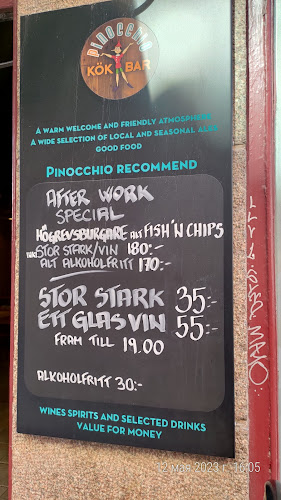 PINOCCHIO
KÖK BAR
A WARM WELCOME AND FRIENDLY ATMOSPHERE
A WIDE SELECTION OF LOCAL AND SEASONAL ALES
GOOD FOOD
PINOCCHIO RECOMMEND
AFTER WORK
SPECIAL
HÖGREVSBURGARE alt FISH'N CHIPS
STOR STARK/VIN 180:-
ALT ALKOHOLFRITT 170:-
STOR STARK 35:-
ETT GLAS VIN 55:-
FRAM TILL 19.00
ALKOHOLFRITT 30:-
WINES SPIRITS AND SELECTED DRINKS
VALUE FOR MONEY
12 мая 2023 г. 16:05